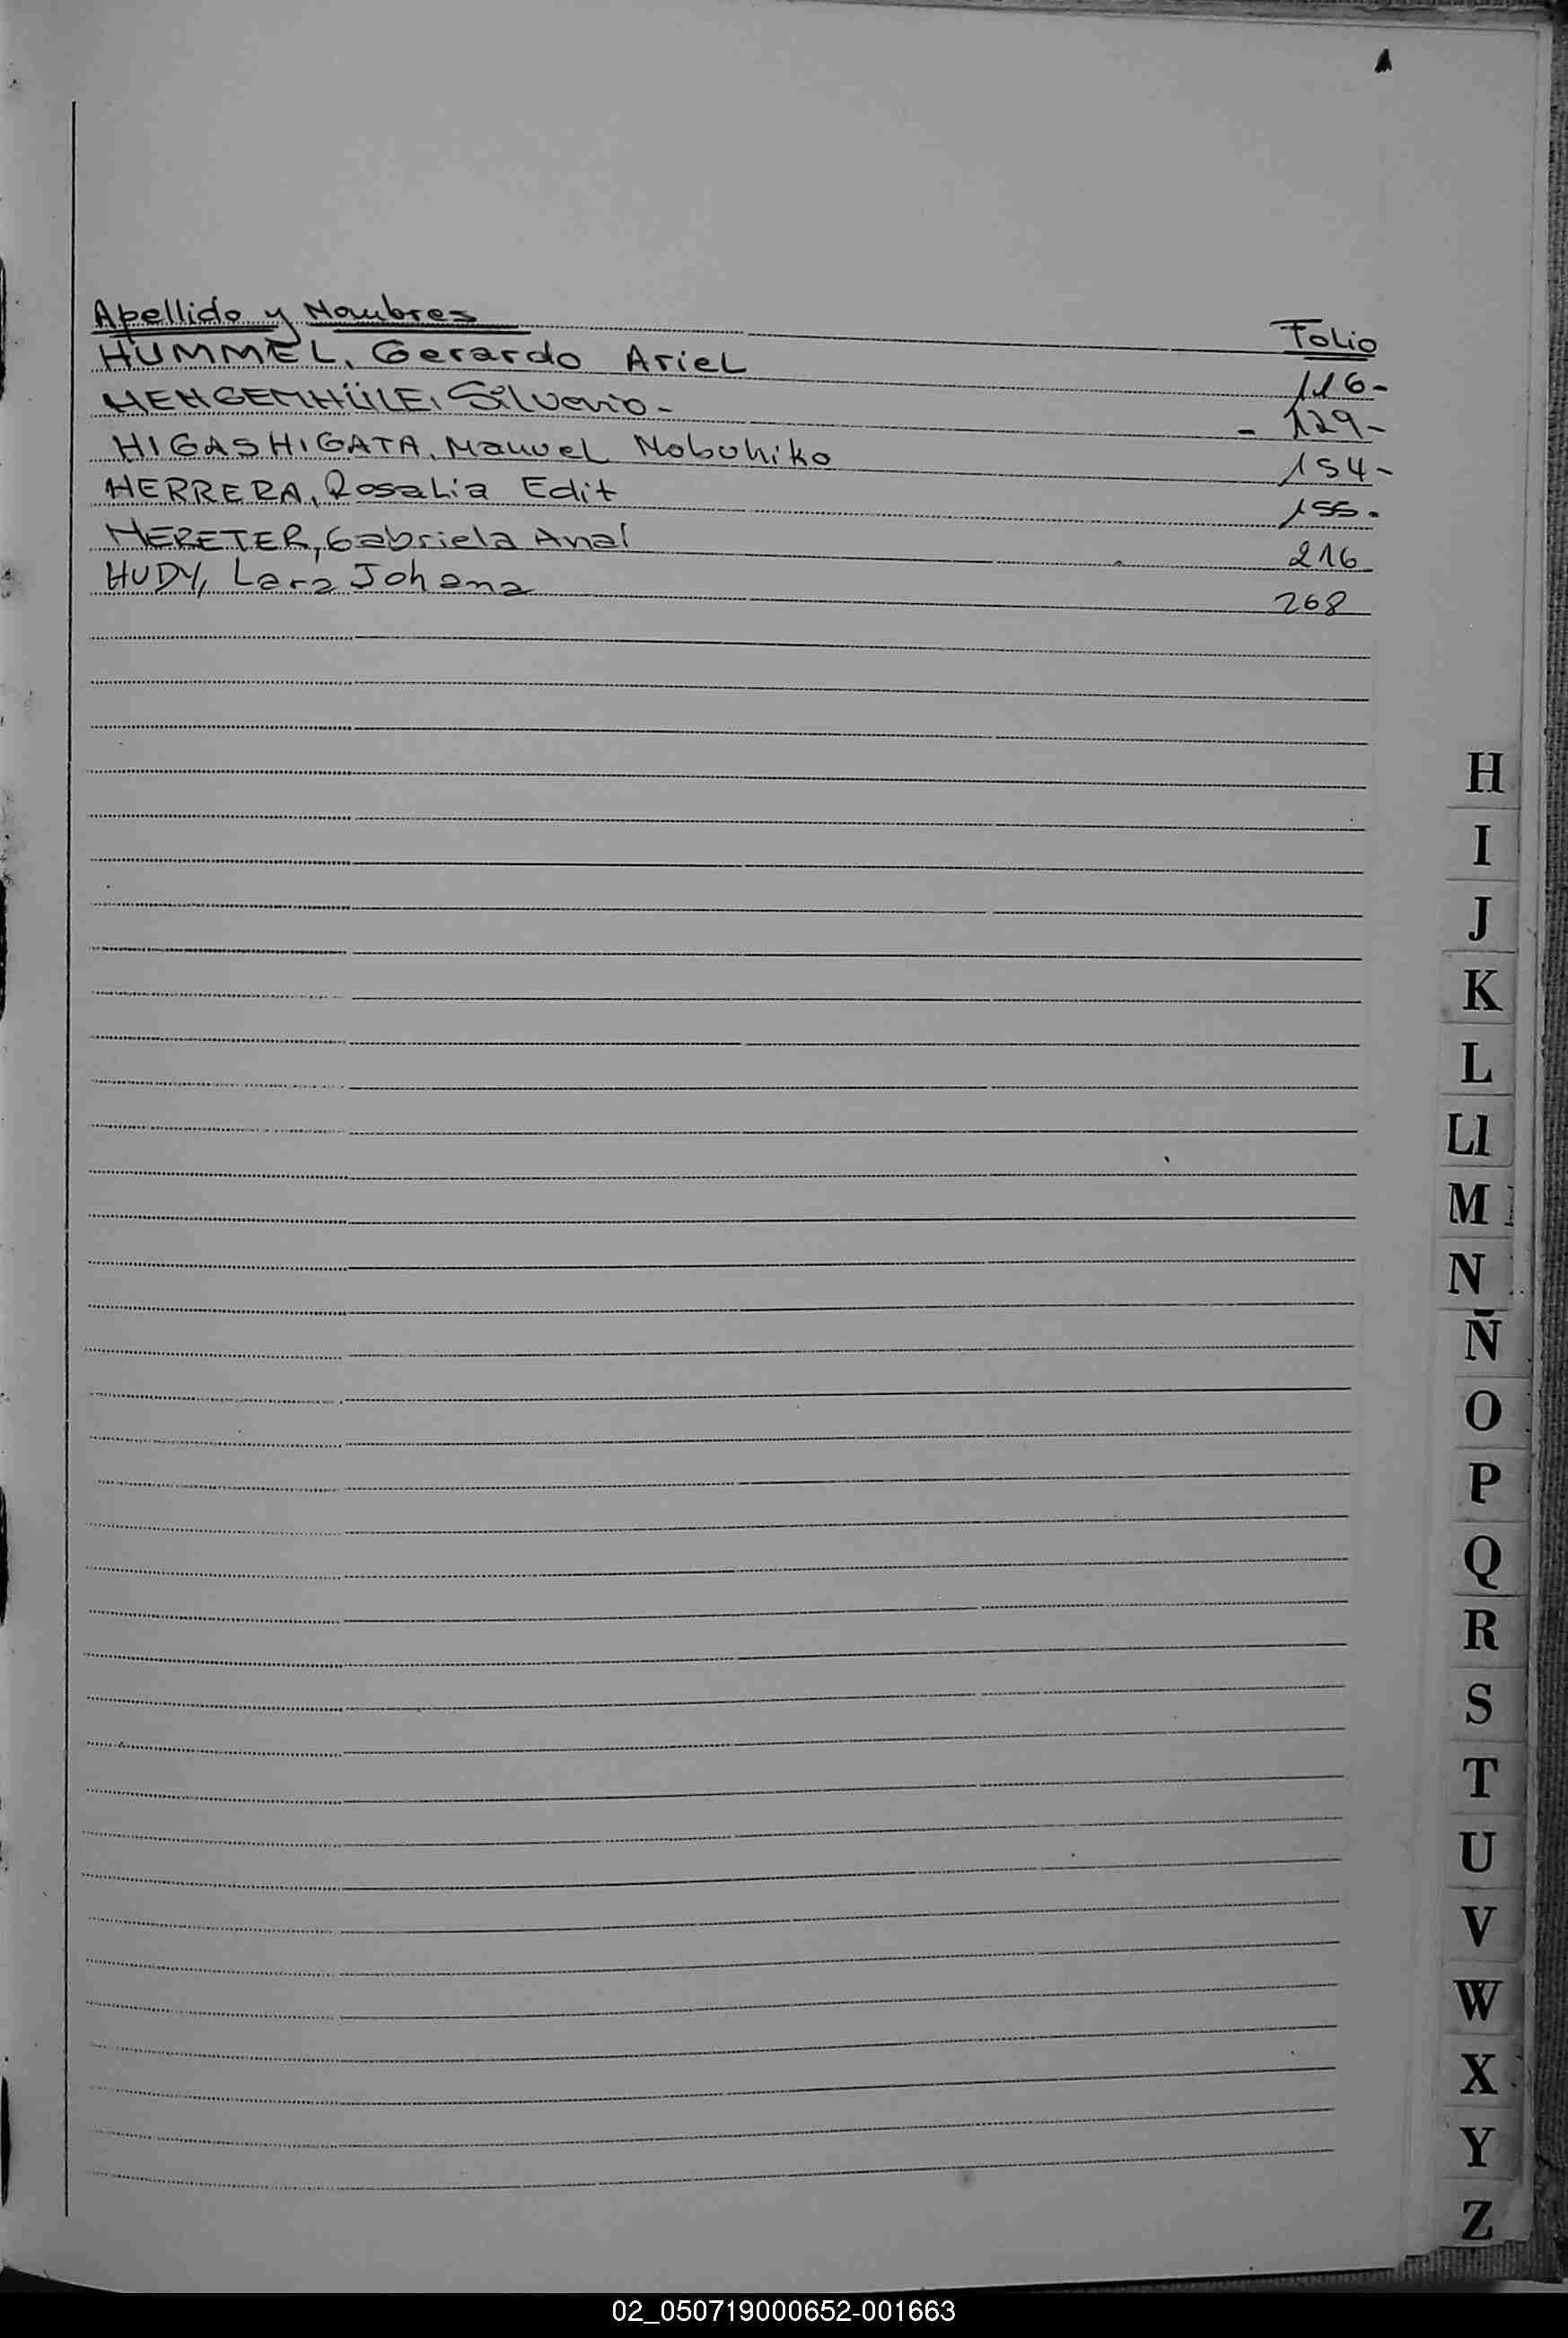 Apellido y Nombres Folio
HUMMEL, Gerardo Ariel 116-
HENGEMHÜLE, Silverio - - 129-
HIGASHIGATA, Manuel Nobuhiko 154-
HERRERA, Rosalia Edit 155.
HERETER, Gabriela Anal 216
HUDY, Lara Johana 268
H
I
J
K
L
Ll
M
N
Ñ
O
P
Q
R
S
T
U
V
W
X
Y
Z
02_050719000652-001663